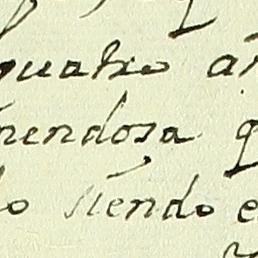 quatro añ
mendosa q
do siendo e